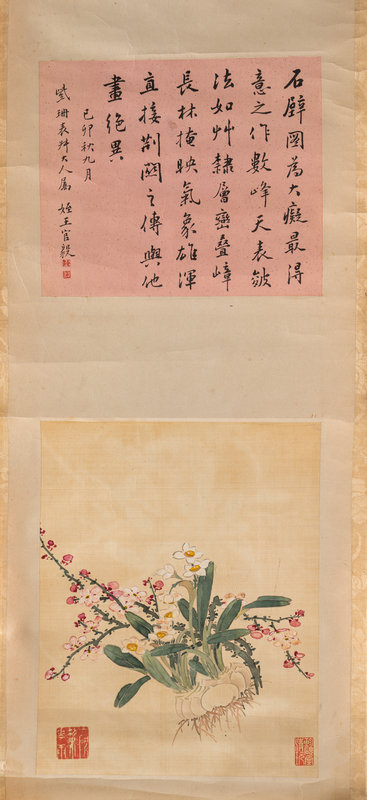 石壁圖為大癡最得
意之作數峰天表皴
法如艸隸層巒叠嶂
長林掩映氣象雄渾
直接荆關之傳與他
畫絕異
己卯秋九月
紫珊表叔大人屬 姪王官毅